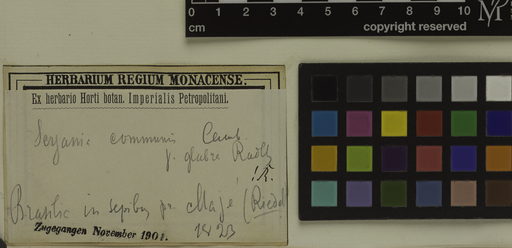 0 1 2 3 4 5 6 7 8 9 10
cm
copyright reserved
HERBARIUM REGIUM MONACENSE.
Ex herbario Horti botan. Imperialis Petropolitani.
Serjania communis Camb.
γ. glabra Radlk
!R.
Brasilia in sepibus pr. Magé (Riedel
Zugegangen November 190
1823